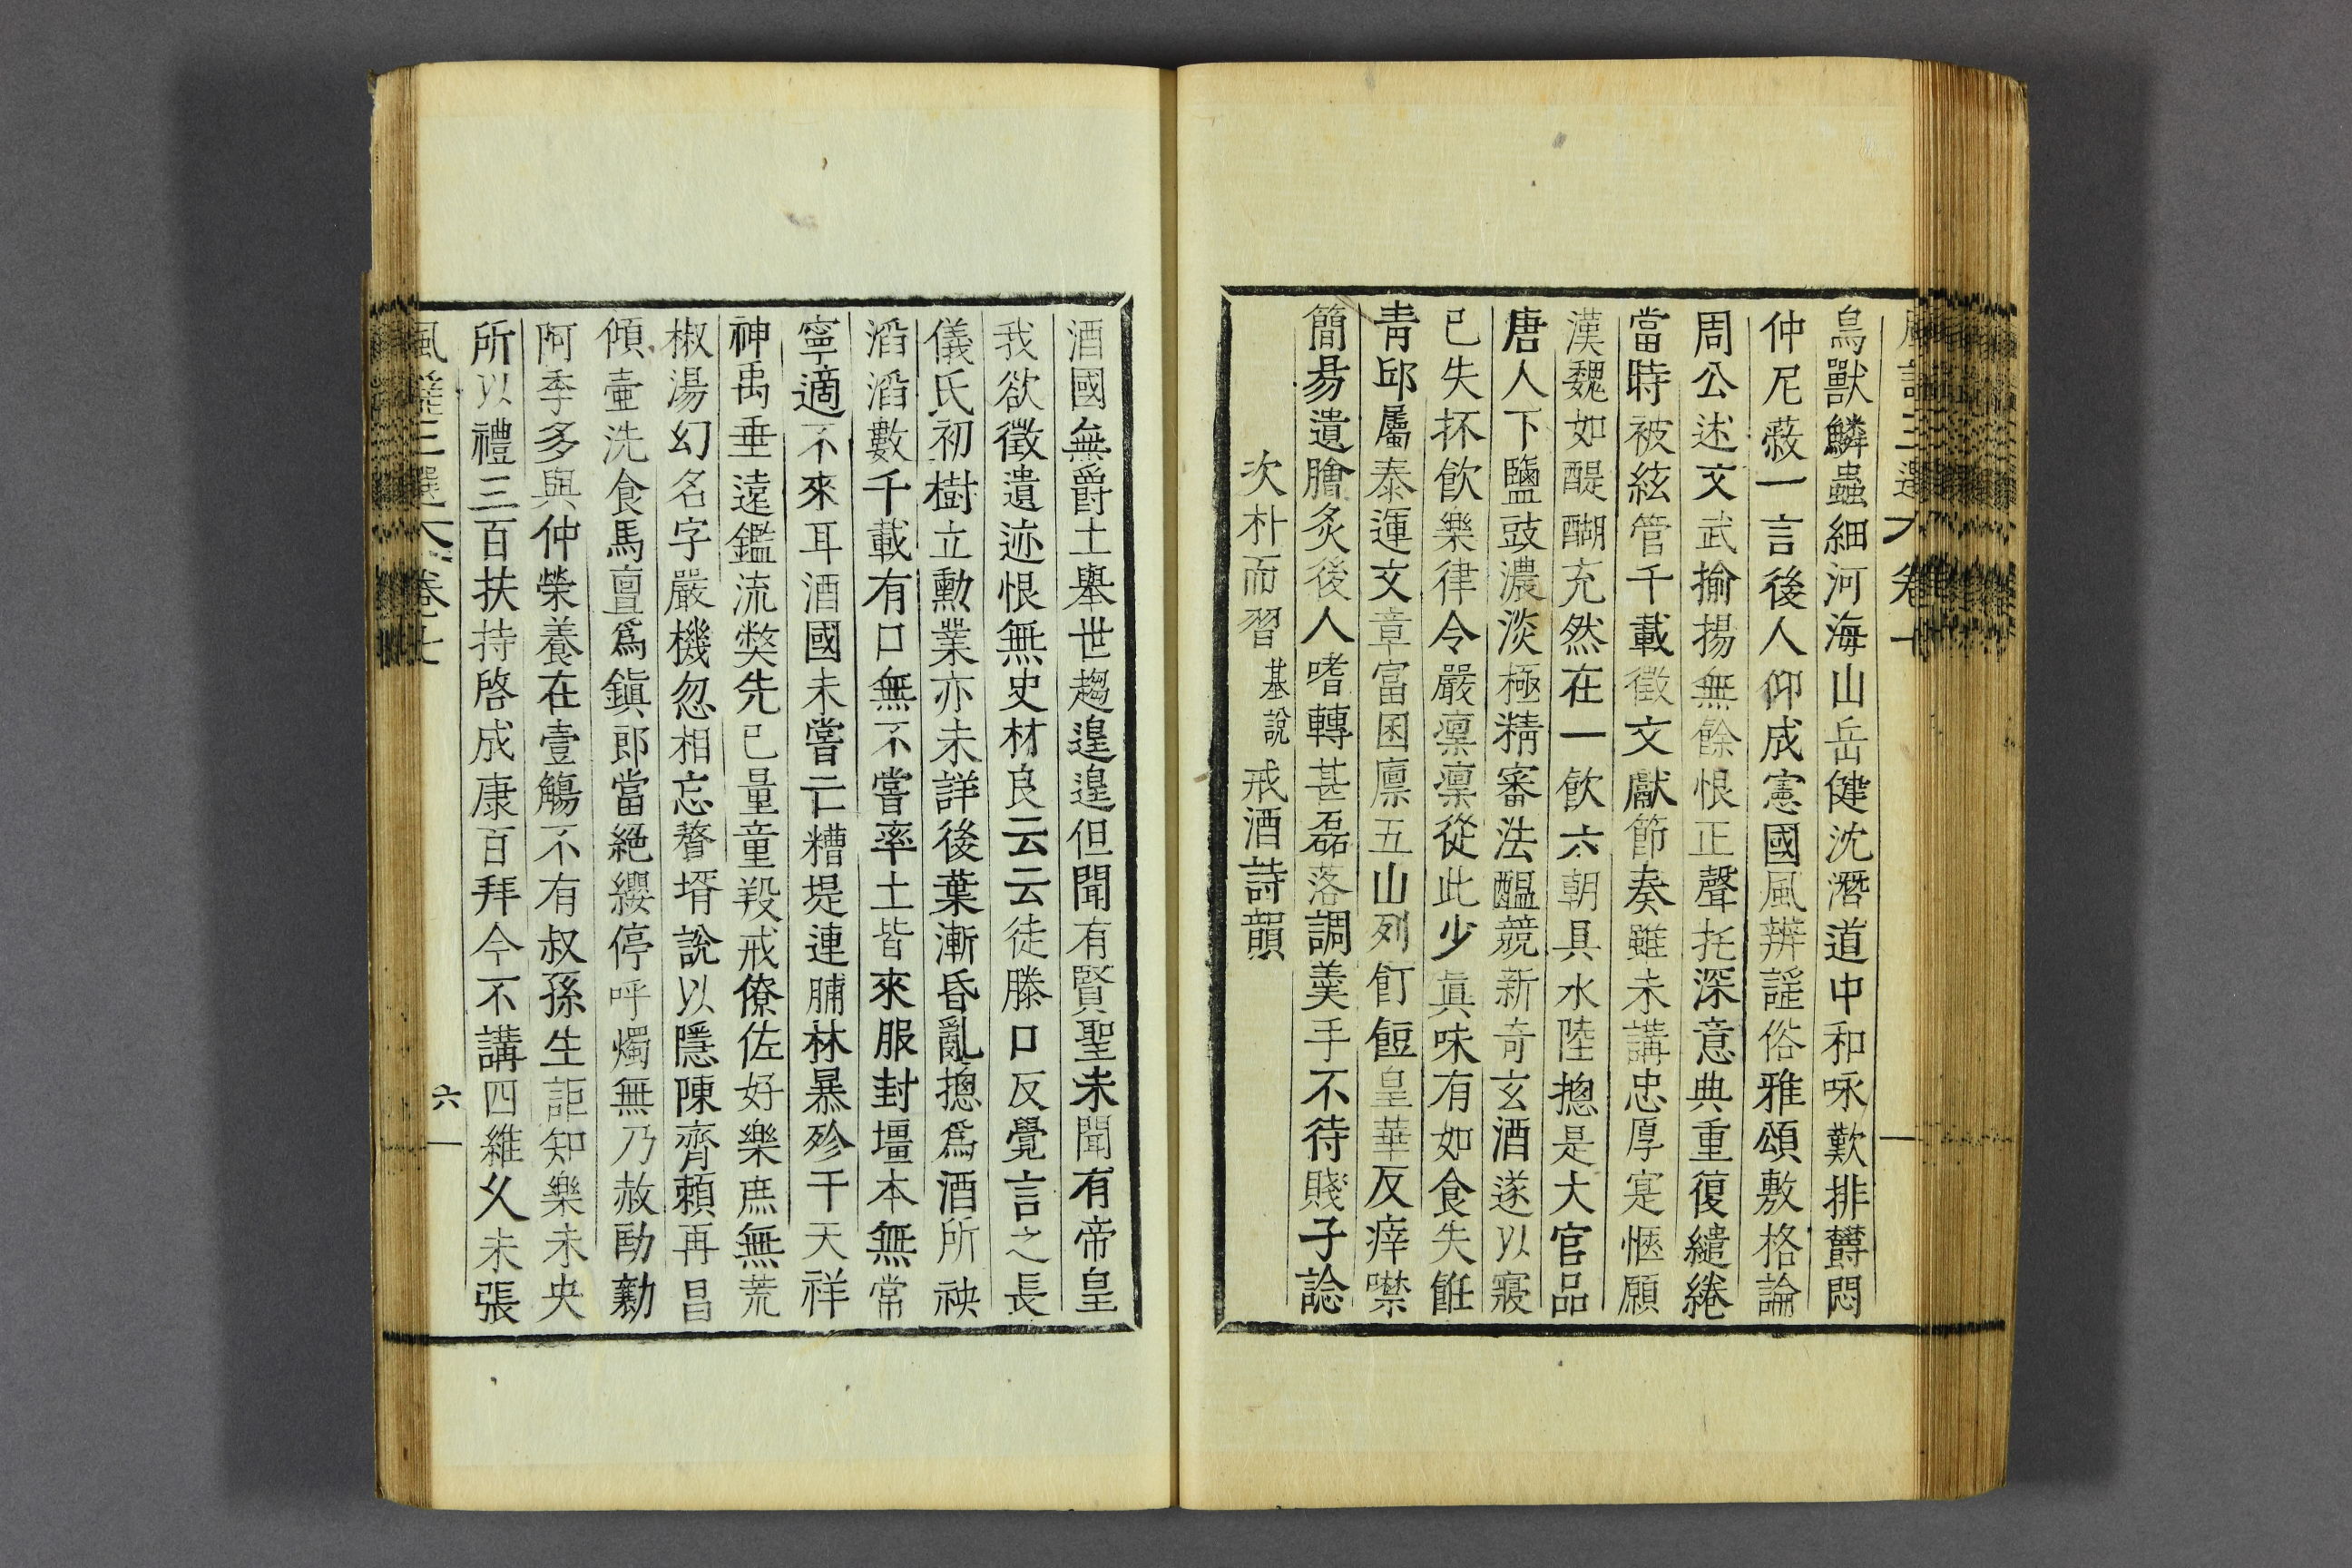 鳥獸鱗蟲細河海山岳健沈潛道中和咏歎排欝悶
仲尼蔽一言後人仰成憲國風辨謠俗雅頌敷格論
周公述文武揄揚無餘恨正聲托深意典重復繾綣
當時被絃管千載徵文獻節奏雖未講忠厚寔愜願
漢魏如醍醐充然在一飮六朝具水陸摠是大官品
唐人下鹽豉濃淡極精審法醞競新奇玄酒遂以寢
已失抔飮樂律令嚴凜凜從此少眞味有如食失飪
靑邱屬泰運文章富囷廩五山列飣餖皇華反瘁噤
簡易遺膾炙後人嗜轉甚磊落調羹手不待賤子諗
次朴而習基說戒酒詩韻
酒國無爵土擧世趨遑遑但聞有賢聖未聞有帝皇
我欲徵遺迹恨無史材良云云徒滕口反覺言之長
儀氏初樹立勳業亦未詳後葉漸昏亂摠爲酒所祅
滔滔數千載有口無不嘗率土皆來服封壃本無常
寧適不來耳酒國未嘗亡糟堤連脯林暴殄干天祥
神禹垂遠鑑流獘先已量童羖戒僚佐好樂庶無荒
椒湯幻名字嚴機忽相忘瞀壻說以隱陳齊賴再昌
傾壷洗食馬亶爲鎭郎當絶纓停呼燭無乃赦勖勷
阿季多與仲榮養在壹觴不有叔孫生詎知樂未央
所以禮三百扶持啓成康百拜今不講四維久未張
六